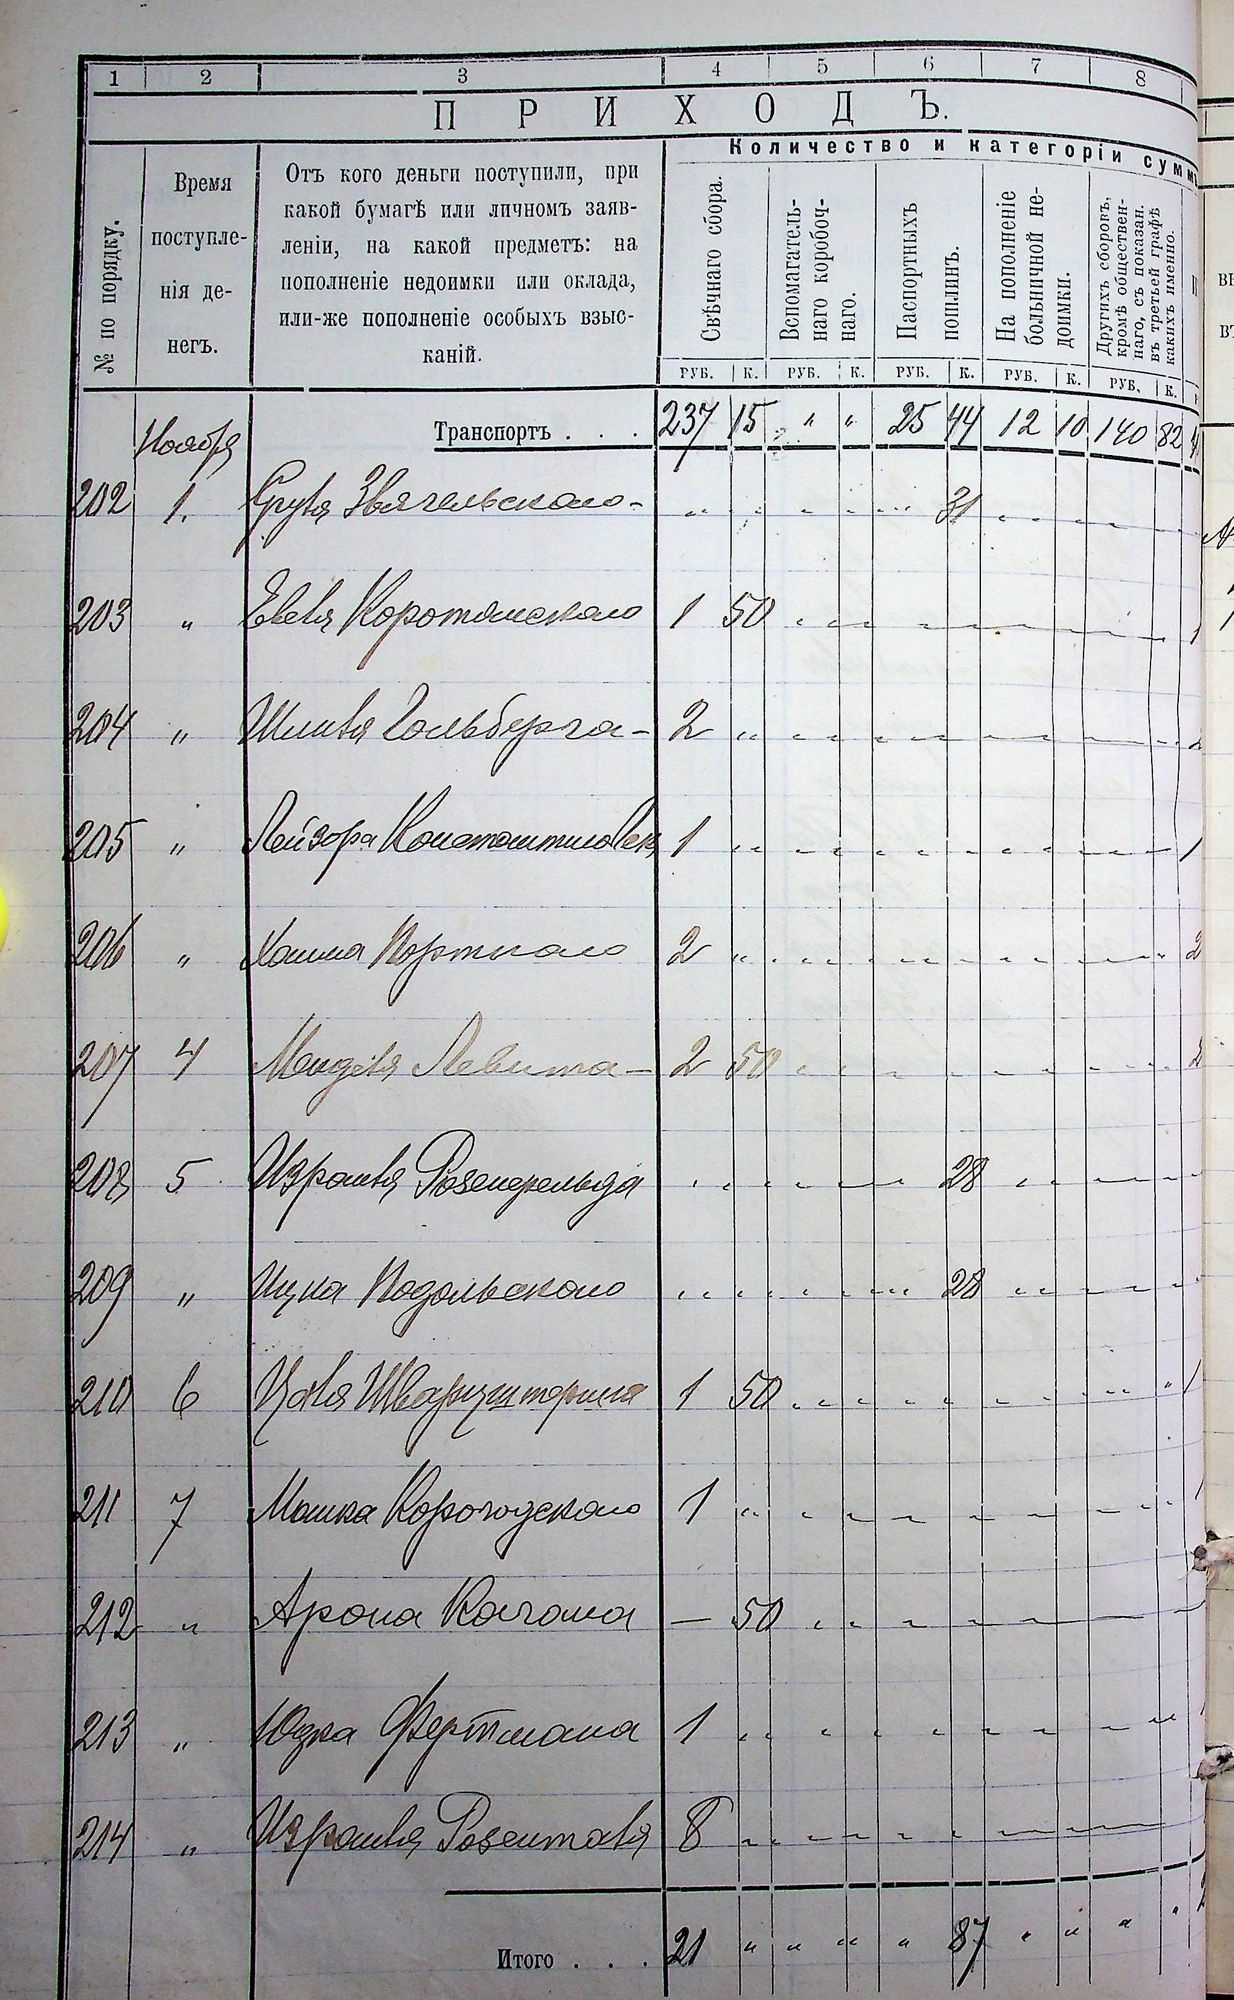 1 2 3 4 5 6 7 8
ПРИХОДЪ.
Количество и категоріи сумм
№ по порядку.
Время
поступле-
нія де-
негъ.
Отъ кого деньги поступили, при
какой бумагѣ или личномъ заяв-
леніи, на какой предметъ: на
пополненіе недоимки или оклада,
или-же пополненіе особыхъ взыс-
каній.
Свѣчнаго сбора.
Вспомагатель-
наго коробоч-
наго.
Паспортныхъ
пошлинъ.
На пополненіе
больничной не-
доимки.
Другихъ сборовъ,
кромѣ обществен-
наго, съ показан.
въ третьей графѣ
какихъ именно.
РУБ. К. РУБ. К. РУБ. К. РУБ. К. РУБ. К.
Ноября Транспортъ . . . 237 15 " " 25 44 12 10 140 82
202 1. Звягельскаго 31
203 " Коротянскаго 1 50
204 " Гольберга 2 "
205 " Лейзора 1 "
206 " Портного 2 "
207 4 Левита 2 50
208 5 Израиля Розенфельда 28
209 " Ицка Подольскаго 28
210 6 Шварцштерина 1 50
211 7 Мошка Корогодскаго 1 "
212 " Арона Кагана — 50
213 " Юдка Фертмана 1 "
214 " Израиля Розенталя 8
Итого . . . 21 " " " " 87 " " " "